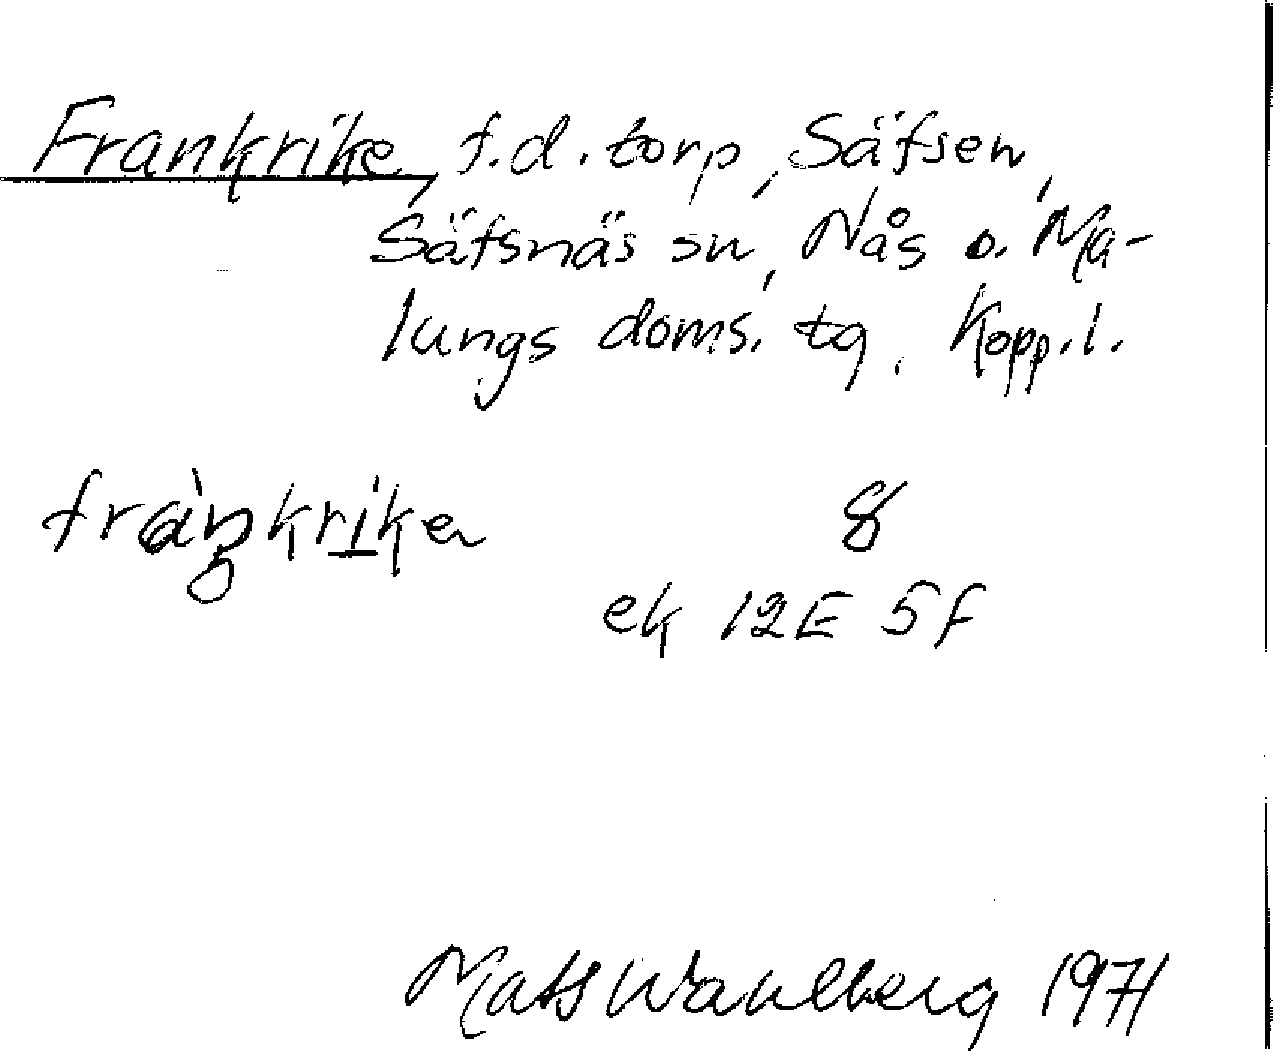 Frankrike, f.d. torp, Säfsen,
Säfsnäs sn, Nås o. Ma-
lungs doms. tg. Kopp.l.
fràŋkrike 8
ek 12E 5f
Mats Wahlberg 1971